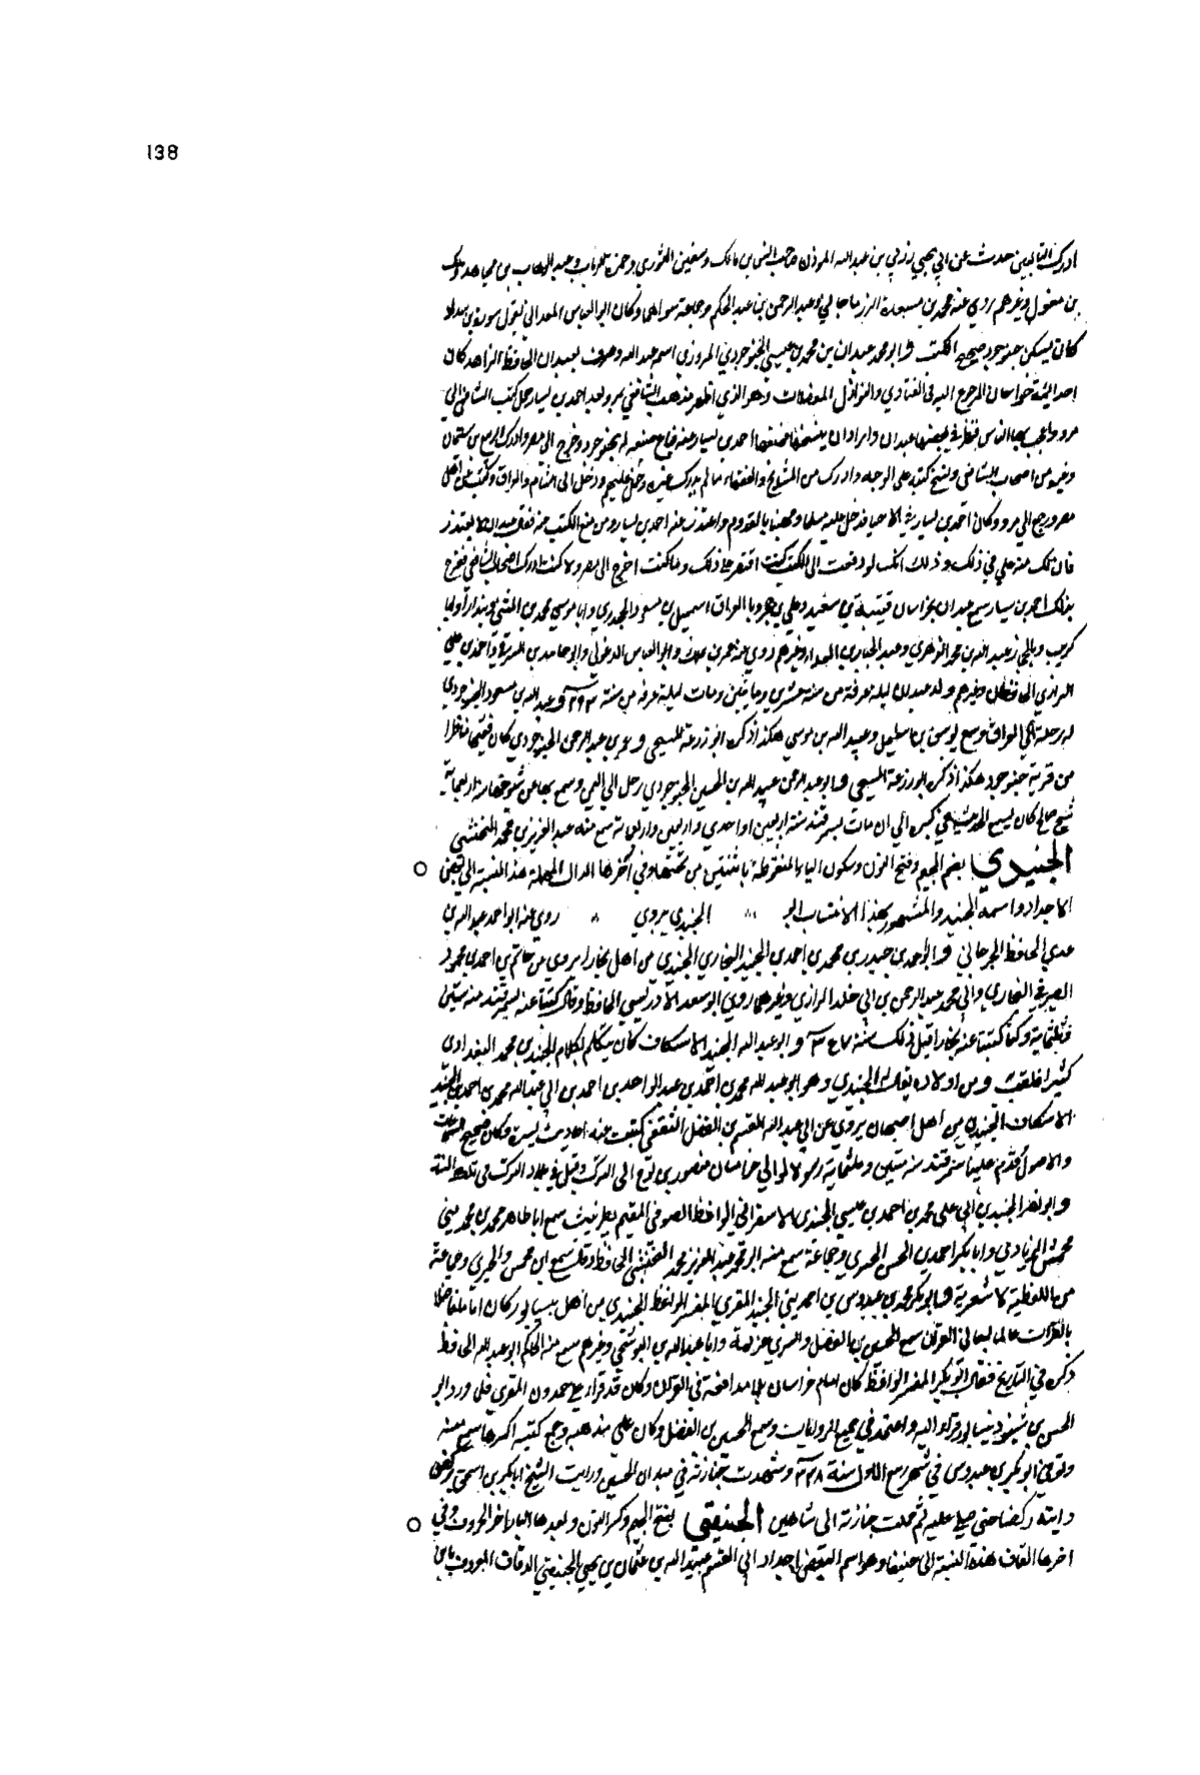 138
ادرك التابعين حدث عن ابي يحيى زربي بن عبدالله الموذن صاحب انس بن مالك وسفين الثوري وحمزة الزيات وعبد الوهاب بن مجاهد ومالك
بن مغول وغيرهم روى عنه محمد بن مسعدة وعبد الرحمن بن عبد الحكم وجماعة سواهما وكان ابو العباس المعداني يقول سورة بن شداد
كان يسكن جنوجرد صحيح الكتب وابو محمد عبدان بن محمد بن عيسى الجنوجردي المروزي اسمه عبدالله وعرف بعبدان الحافظ الزاهد كان
احد ائمة خراسان المرجوع اليه في الفتاوي والنوازل المعضلات وهو الذي اظهر مذهب الشافعي بمرو بعد احمد بن سيار حمل كتب الشافعي الى
مرو واعجب بها الناس فنظر في بعضها عبدان واراد ان ينسخها فمنعها احمد بن سيار عنه فباع ضيعة له بجنوجرد وخرج الى مصر وادرك الربيع بن سليمان
وغيره من اصحاب الشافعي ونسخ كتبه على الوجه وادرك من المشايخ والفقهاء ما لم يدرك غيره وحمل عليهم ودخل الى الشام والعراق وكتب عن اهل
مصر ورجع الى مرو وكان احمد بن سيار في الاحيا فدخل عليه مسلما ومهنيا بالقدوم واعتذر عنه احمد بن سيار ومن منع الكتب عنه فقال عبدان لا تعتذر
فان لك منة علي في ذلك وذلك انك لو دفعت الي الكتب كنت اقتصر على ذلك وما كنت اخرج الى مصر ولا كنت ادرك اصحاب الشافعي ففرح
بذلك احمد بن سيار سمع عبدان بخراسان قتيبة بن سعيد وعلي بن حجر وبالعراق اسمعيل بن مسعود الجحدري وابا موسى محمد بن المثنى وبندار وابا
كريب وبالحجاز عبد الله بن محمد الزهري وعبد الجبار بن العلاء وغيرهم روى عنه عمر بن علك وابو العباس الدغولي وابو حامد بن الشرقي واحمد بن علي
الرازي الحافظان وغيرهم ولد عبدان ليلة عرفة من سنة عشرين ومايتين ومات ليلة عرفة من سنة ٢٩٣ وعبد الله بن مسعود الجنوجردي
له رحلة الى العراق وسمع وعبيد الله بن موسى هكذا ذكره ابو زرعة السبحي و بن عبد الرحمن الجنوجردي كان فقيها مناظرا
من قرية جنوجرد هكذا ذكره ابو زرعة السبحي وابو عبد الرحمن عبيد الله بن الحسين الجنوجردي رحل الى الري وسمع بها من شيوخها
شيخ صالح كان يسمع الحديث في كبره الى ان مات بسمرقند سنة اربعين او احدى واربعين واربعمائة سمع منه عبد العزيز بن محمد النخشبي
الجنيدي بضم الجيم وفتح النون وسكون الياء المنقوطة باثنتين من تحتها وفي آخرها الدال المهملة هذه النسبة الى بعض
الاجداد واسمه الجنيد والمشهور بهذا الانتساب ابو الجنيدي يروي روى عنه ابو احمد عبد الله بن
عدي الحافظ الجرجاني وابو احمد بن حيدر بن محمد بن احمد بن الجنيد البخاري الجنيدي من اهل بخارا يروي عن حاتم بن احمد بن محمود
الصيرفي البخاري وابي محمد عبد الرحمن بن ابي خلد الرازي وغيرهما روى ابو سعد الادريسي الحافظ وقال كتبنا عنه بسمرقند سنة ستين
وثلثماية وكنا كتبنا عنه ببخارا قبل ذلك سنة وابو عبد الله الجنيد الاسكاف كان يتكلم بكلام الجنيد بن محمد البغدادي
كثيرا فلقب به ومن اولاده يقال له الجنيدي وهو ابو عبد الله محمد بن احمد بن عبد الواحد بن احمد بن ابي عبد الله محمد بن احمد بن الجنيد
الاسكاف الجنيدي من اهل اصبهان يروي عن ابي عبد الله القسم بن الفضل الثقفي كتبت عنه احاديث يسيرة وكان صحيح السماعات
والاصول قدم علينا سمرقند سنة ستين وثلثماية رسولا لوالي خراسان منصور بن نوح الى الترك وقتل في بلاد الترك في تلك السنة
وابو نصر الجنيدي ابي علي محمد بن احمد بن عيسى الجنيدي الاسفرائي الواعظ الصوفي المقيم سمع ابا طاهر محمد بن محمد بن
محمش الزيادي وابا بكر احمد بن الحسن الحيري وجماعة سمع منه ابو محمد عبد العزيز بن محمد النخشبي الحافظ وقال سمع ابن محمش والحيري وجماعة
من باللفظية الاشعرية وابو بكر محمد بن عبدوس بن احمد بن الجنيد المقري المفسر الواعظ الجنيدي من اهل نيسابور كان اماما فاضلا
بالقرات عالما بمعاني القران سمع الحسين بن الفضل والسري بن خزيمة وابا عبد الله بن البوشنجي وغيرهم سمع منه الحاكم ابو عبد الله الحافظ
ذكره في التاريخ فقال ابو بكر المفسر الواعظ كان امام خراسان بلا مدافعة في القران وكان قد قرا على حمدون المقري فلما ورد ابو
الحسن بن شنبوذ نيسابور قرا عليه واعتمده في جميع الروايات وسمع الحسين بن الفضل وكان على مذهبه وجمع كتبه اكثرها سمع منه
وتوفي ابو بكر بن عبدوس في شهر ربيع الاول سنة ٣٣٨ وشهدت جنازته في ميدان الحسين ورايت الشيخ ابا بكر بن اسحق يركض
دابته ركضا حتى صلى عليه ثم حملت جنازته الى شاهين الجنيقي بفتح الجيم وكسر النون وبعدها الياء اخر الحروف وفي
اخرها القاف هذه النسبة الى جنيقا وهو اسم لبعض اجداد ابي القسم عبيد الله بن عثمان بن يحيى الجنيقي الدقاق المعروف بابن